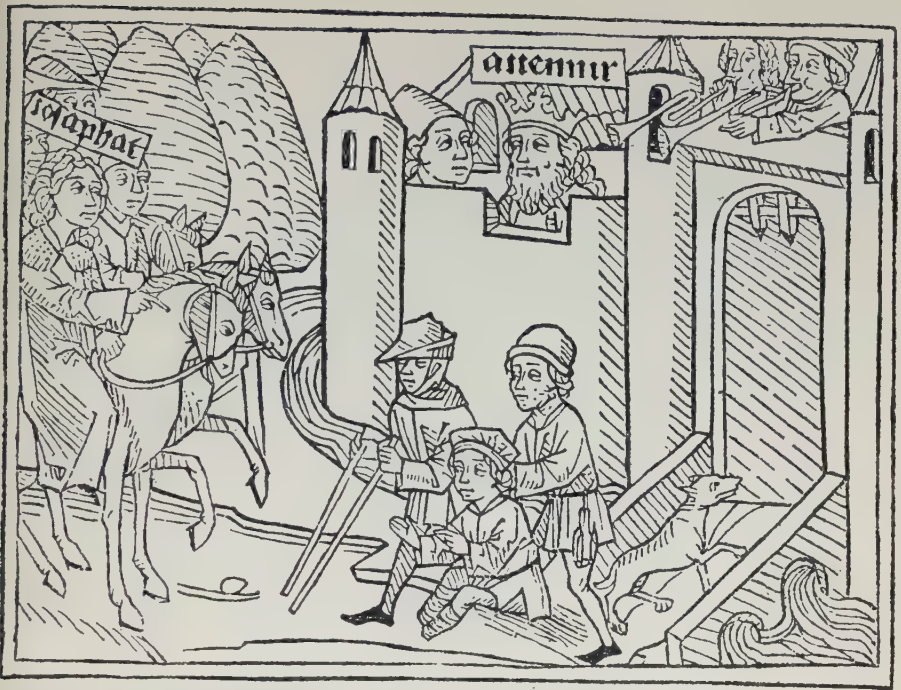 iosaphat
auennir